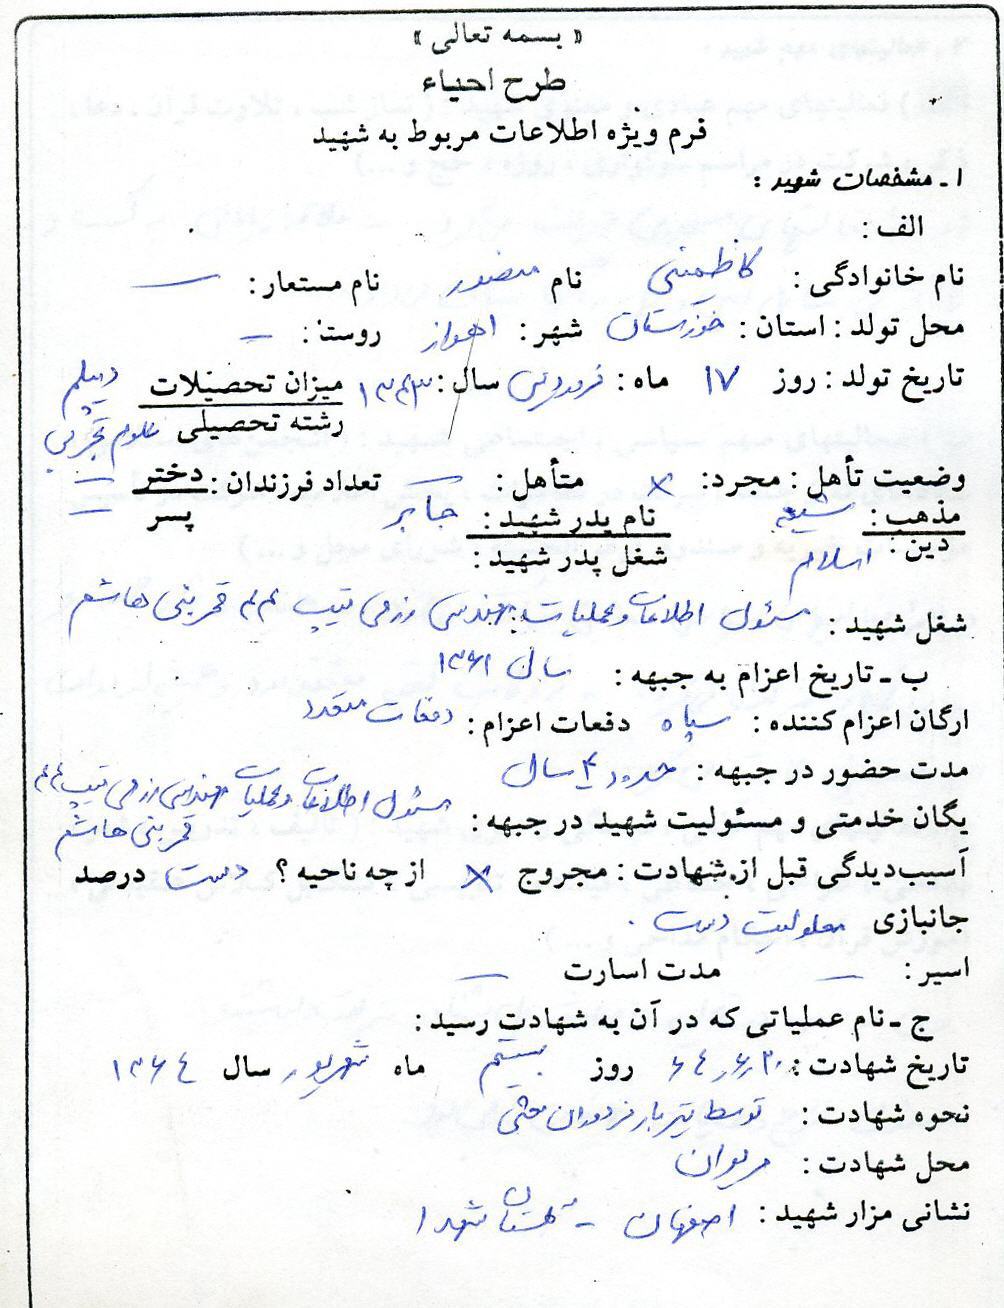 « بسمه تعالی »
طرح احیاء
فرم ویژه اطلاعات مربوط به شهید
۱ـ مشخصات شهید :
الف :
نام خانوادگی : کاظمینی نام منصور نام مستعار : —
محل تولد : استان : خوزستان شهر : اهواز روستا : —
تاریخ تولد : روز ۱۷ ماه : فروردین سال : ۱۳۴۳ میزان تحصیلات دیپلم
رشته تحصیلی علوم تجربی
وضعیت تأهل : مجرد : × متأهل : — تعداد فرزندان : دختر —
مذهب : شیعه نام پدر شهید : جابر پسر —
دین : اسلام شغل پدر شهید :
شغل شهید : مسئول اطلاعات و عملیات مهندسی رزمی تیپ ۴۴ قمر بنی هاشم
ب ـ تاریخ اعزام به جبهه : سال ۱۳۶۱
ارگان اعزام کننده : سپاه دفعات اعزام : دفعات متعدد
مدت حضور در جبهه : حدود ۴ سال
یگان خدمتی و مسئولیت شهید در جبهه : مسئول اطلاعات و عملیات مهندسی رزمی تیپ ۴۴
قمر بنی هاشم
آسیب‌دیدگی قبل از شهادت : مجروح × از چه ناحیه ؟ دست درصد
جانبازی معلولیت دست .
اسیر : — مدت اسارت —
ج ـ نام عملیاتی که در آن به شهادت رسید :
تاریخ شهادت : ۶۴/۶/۲۰ روز بیستم ماه شهریور سال ۱۳۶۴
نحوه شهادت : توسط تیربار مزدوران محلی
محل شهادت : مریوان
نشانی مزار شهید : اصفهان - گلستان شهدا